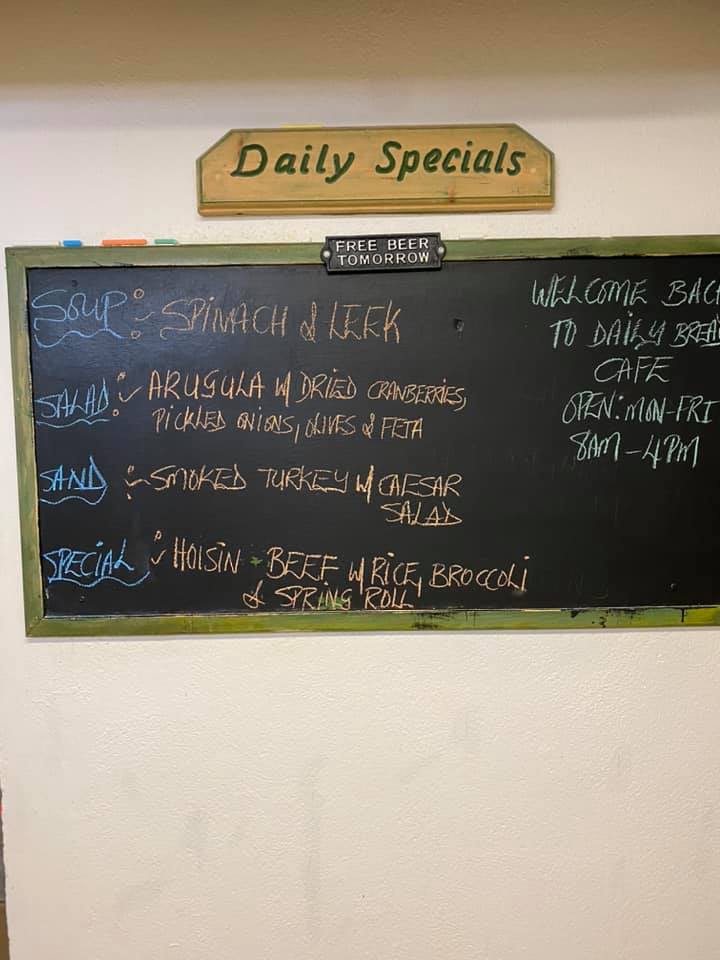 Daily Specials
FREE BEER
TOMORROW
SOUP: - SPINACH & LEEK
SALAD: - ARUGULA W/ DRIED CRANBERRIES,
PICKLED ONIONS, OLIVES & FETA
SAND: - SMOKED TURKEY W/ CAESAR
SALAD
SPECIAL: - HOISIN BEEF W/ RICE, BROCCOLI
& SPRING ROLL
WELCOME BAC
TO DAILY BREA
CAFE
OPEN: MON-FRI
8AM - 4PM